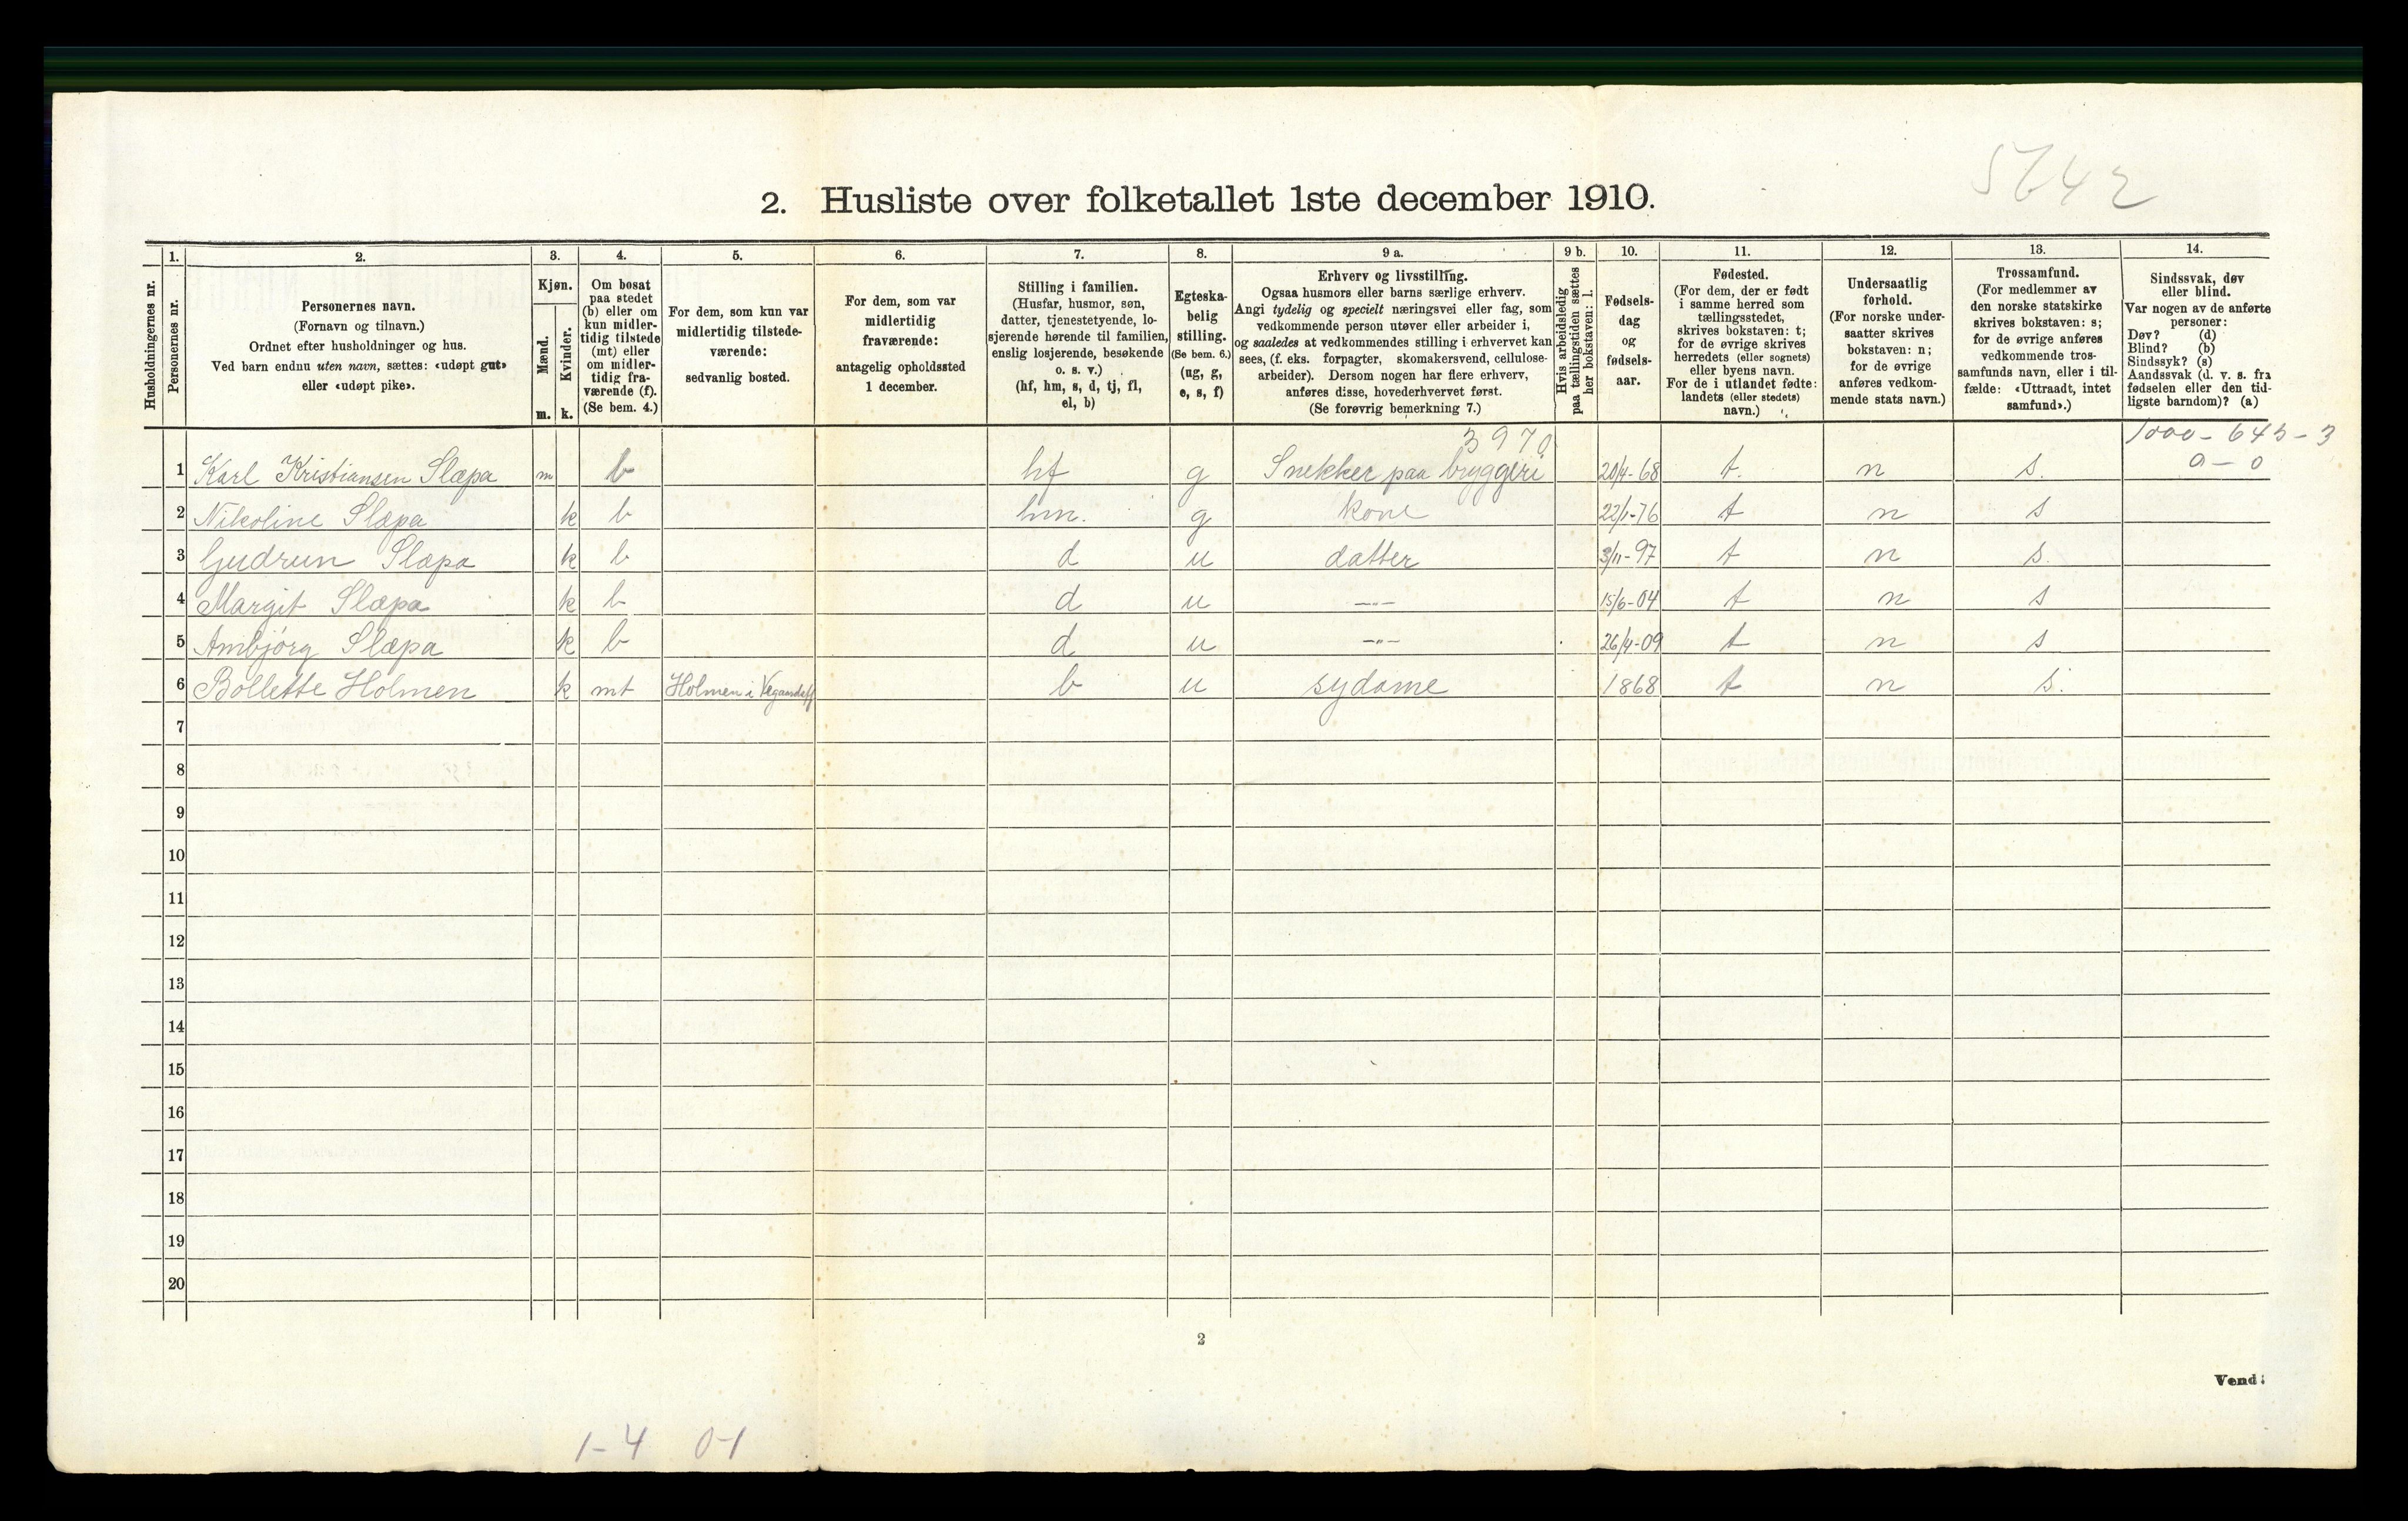 5642
2. Husliste over folketallet 1ste december 1910.
Husholdningernes nr.
1.
Personernes nr.
2.
Personernes navn.
(Fornavn og tilnavn.)
Ordnet efter husholdninger og hus.
Ved barn endnu uten navn, sættes: «udøpt gut»
eller «udøpt pike».
3.
Kjøn.
Mænd.
m.
Kvinder.
k.
4.
Om bosat
paa stedet
(b) eller om
kun midler-
tidig tilstede
(mt) eller
om midler-
tidig fra-
værende (f).
(Se bem. 4.)
5.
For dem, som kun var
midlertidig tilstede-
værende:
sedvanlig bosted.
6.
For dem, som var
midlertidig
fraværende:
antagelig opholdssted
1 december.
7.
Stilling i familien.
(Husfar, husmor, søn,
datter, tjenestetyende, lo-
sjerende hørende til familien,
enslig losjerende, besøkende
o. s. v.)
(hf, hm, s, d, tj, fl,
el, b)
8.
Egteska-
belig
stilling.
(Se bem. 6.)
(ug, g,
e, s, f)
9 a.
Erhverv og livsstilling.
Ogsaa husmors eller barns særlige erhverv.
Angi tydelig og specielt næringsvei eller fag, som
vedkommende person utøver eller arbeider i,
og saaledes at vedkommendes stilling i erhvervet kan
sees, (f. eks. forpagter, skomakersvend, cellulose-
arbeider). Dersom nogen har flere erhverv,
anføres disse, hovederhvervet først.
(Se forøvrig bemerkning 7.)
9 b.
Hvis arbeidsledig
paa tællingstiden sættes
her bokstaven: l.
10.
Fødsels-
dag
og
fødsels-
aar.
11.
Fødested.
(For dem, der er født
i samme herred som
tællingsstedet,
skrives bokstaven: t;
for de øvrige skrives
herredets (eller sognets)
eller byens navn.
For de i utlandet fødte:
landets (eller stedets)
navn.)
12.
Undersaatlig
forhold.
(For norske under-
saatter skrives
bokstaven: n;
for de øvrige
anføres vedkom-
mende stats navn.)
13.
Trossamfund.
(For medlemmer av
den norske statskirke
skrives bokstaven: s;
for de øvrige anføres
vedkommende tros-
samfunds navn, eller i til-
fælde: «Uttraadt, intet
samfund».)
14.
Sindssvak, døv
eller blind.
Var nogen av de anførte
personer:
Døv? (d)
Blind? (b)
Sindssyk? (s)
Aandssvak (d. v. s. fra
fødselen eller den tid-
ligste barndom)? (a)
3970 1000 - 645 - 3
1 Karl Kristiansen Slæpa m b hf g Snekker paa bryggeri 20/4-68 t. n s. 0 - 0
2 Nikoline Slæpa k b hm. g kone 22/1-76 t n s
3 Gudrun Slæpa k b d u datter 3/11-97 t n s.
4 Margit Slæpa k b d u —"— 15/6-04 t n s
5 Ambjörg Slæpa k b d u —"— 26/4-09 t n s
6 Bollette Holmen k mt Holmen i b u sydame 1868 t n s.
7
8
9
10
11
12
13
14
15
16
17
18
19
20
2
Vend!
1-4 0-1